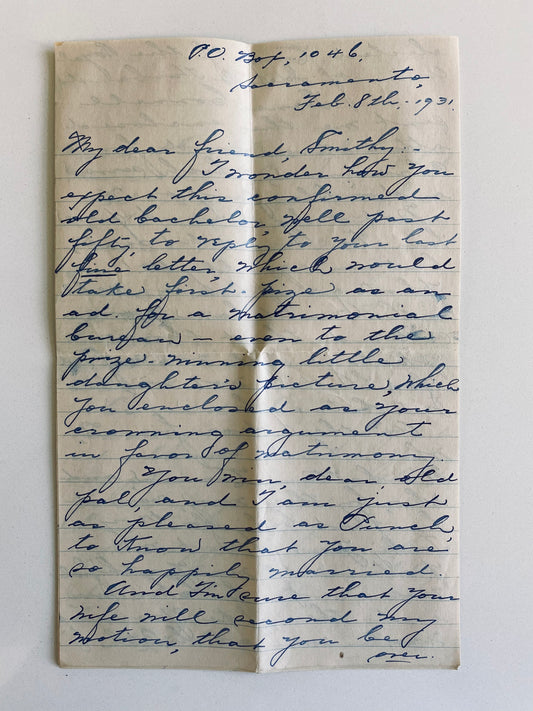 P.O. Box, 1046,
Sacramento,
Feb. 8th. 1931.
My dear friend, Smithy:-
I wonder how you
expect this confirmed
old bachelor, well past
fifty, to reply to your last
fine letter, which would
take first-prize as an
ad. for a matrimonial
bureau - even to the
prize-winning little
daughter's picture, which
you enclosed as your
crowning argument
in favor of matrimony.
You win, dear old
pal, and I am just
as pleased as Punch,
to know that you are
so happily married.
And I'm sure that your
wife will second my
motion, that you be
over.